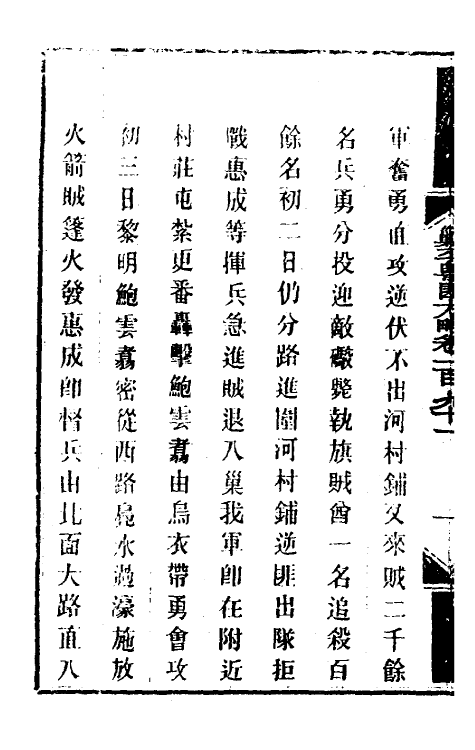 軍奮勇直攻逆伏不出河村鋪又來賊二千餘
名兵勇分投迎敵礮斃執旗賊酋一名追殺百
餘名初二日仍分路進圍河村鋪逆匪出隊拒
戰惠成等揮兵急進賊退入巢我軍卽在附近
村莊屯紮更番轟擊鮑雲翥由烏衣帶勇會攻
初三日黎明鮑雲翥密從西路鳧水過濠施放
火箭賊篷火發惠成卽督兵由北面大路直入